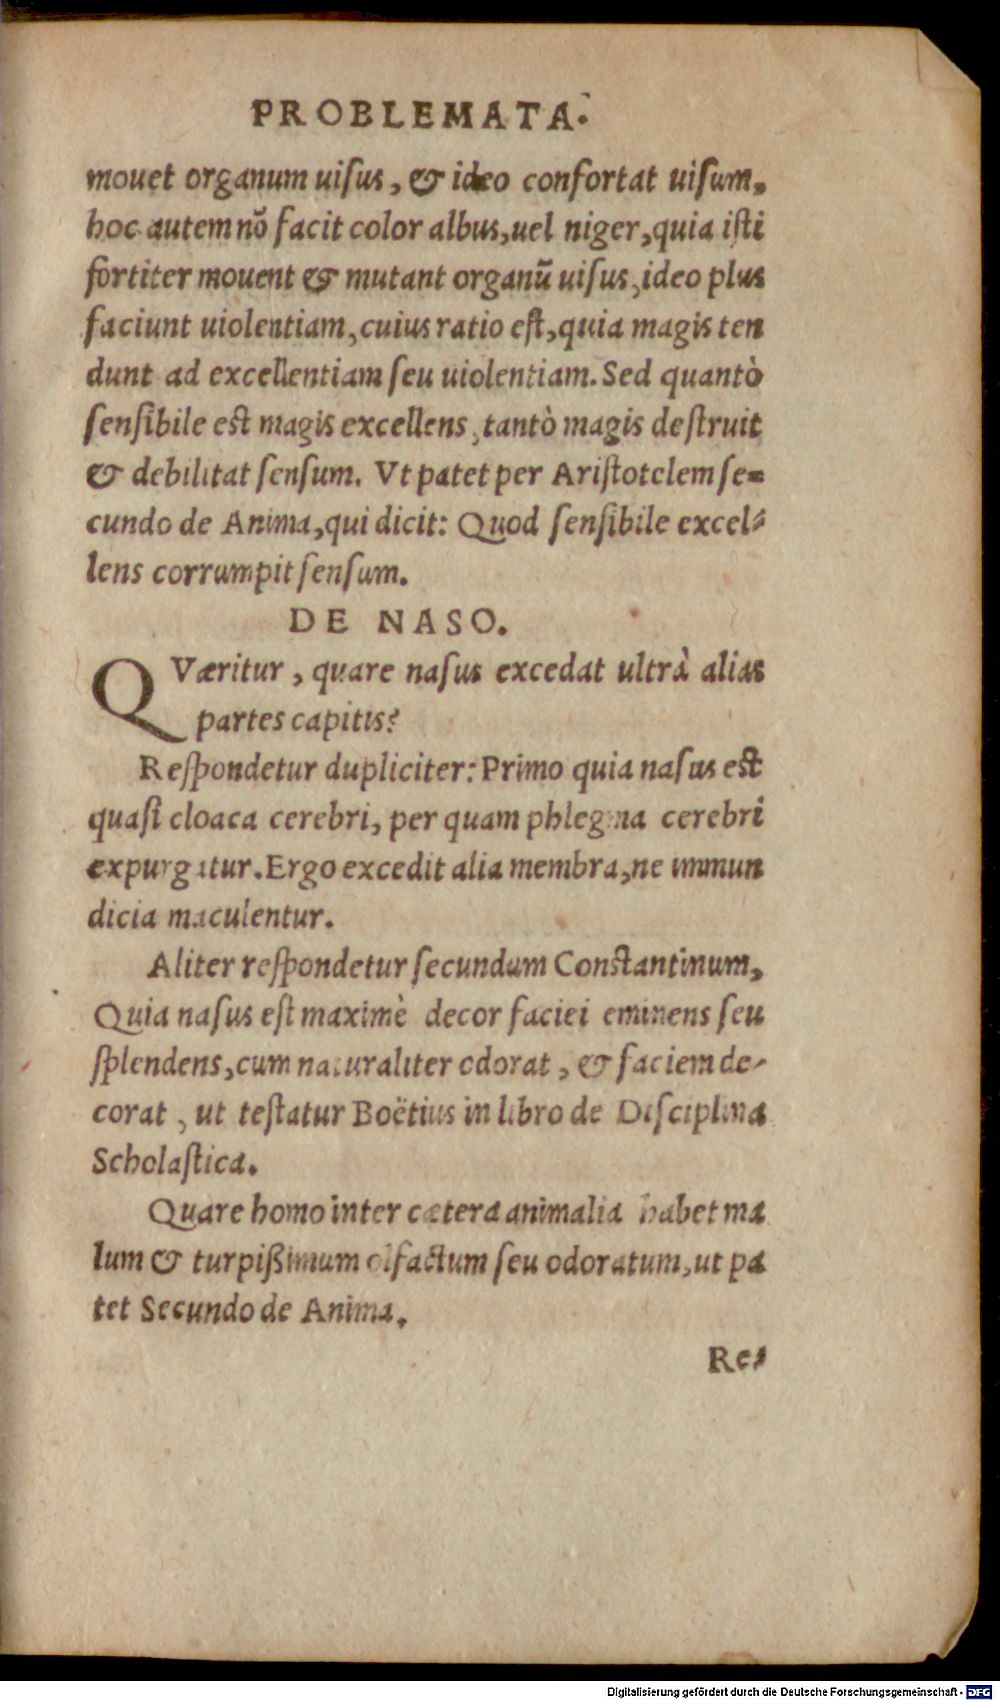 PROBLEMATA.
mouet organum uiſus, & ideo confortat uiſum,
hoc autem nõ facit color albus, uel niger, quia iſti
fortiter mouent & mutant organũ uiſus, ideo plus
faciunt uiolentiam, cuius ratio eſt, quia magis ten
dunt ad excellentiam ſeu uiolentiam. Sed quantò
ſenſibile eſt magis excellens, tantò magis deſtruit
& debilitat ſenſum. Vt patet per Ariſtotelem ſe=
cundo de Anima, qui dicit: Quod ſenſibile excel-
lens corrumpit ſenſum.
DE NASO.
QVæritur, quare naſus excedat ultrà alias
partes capitis?
Reſpondetur dupliciter: Primo quia naſus eſt
quaſi cloaca cerebri, per quam phlegma cerebri
expurgatur. Ergo excedit alia membra, ne immun
dicia maculentur.
Aliter reſpondetur ſecundum Conſtantinum,
Quia naſus eſt maximè decor faciei eminens ſeu
ſplendens, cum naturaliter odorat, & faciem de-
corat, ut teſtatur Boëtius in libro de Diſciplina
Scholaſtica.
Quare homo inter cætera animalia habet ma
lum & turpißimum olfactum ſeu odoratum, ut pa
tet Secundo de Anima.
Re-
Digitalisierung gefördert durch die Deutsche Forschungsgemeinschaft - DFG